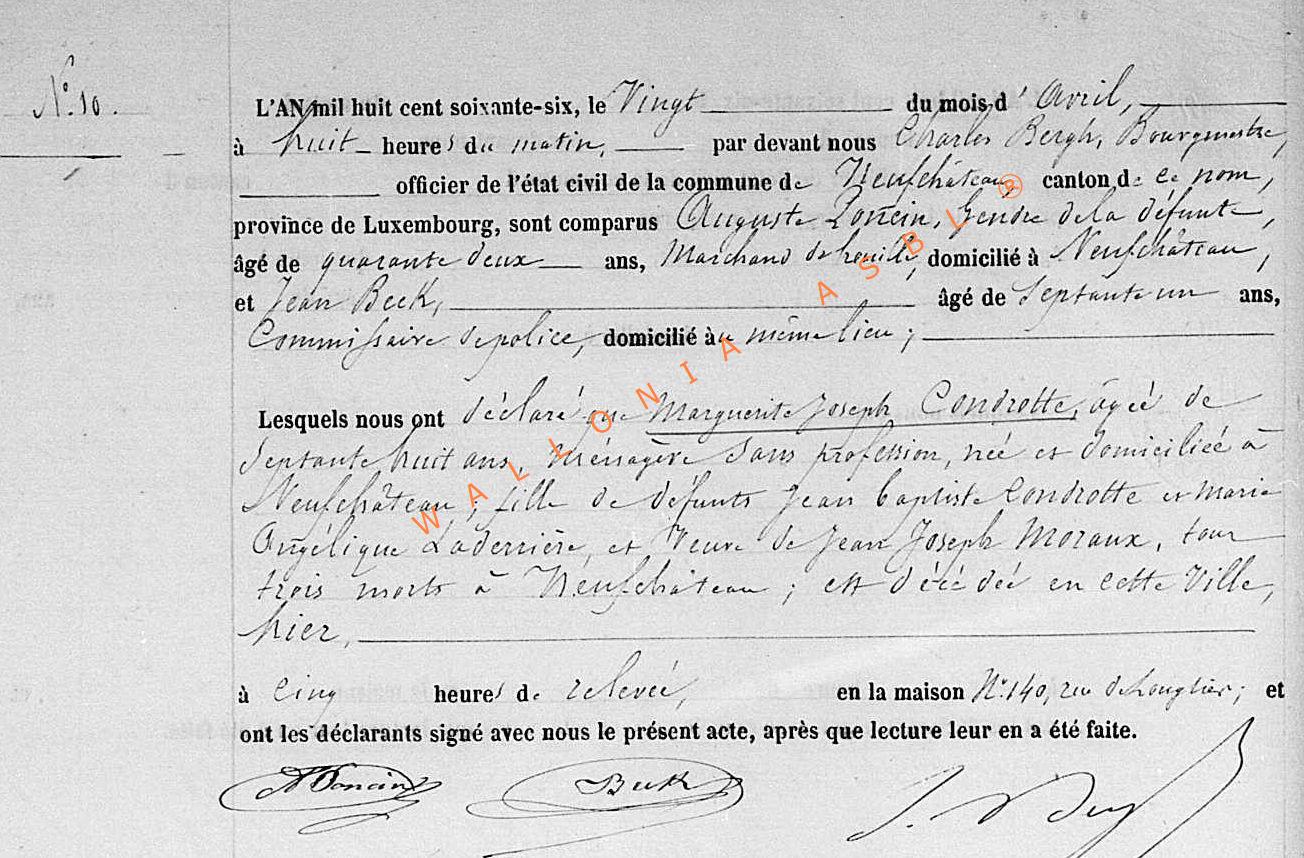 N° 10.
L'AN mil huit cent soixante-six, le Vingt du mois d' Avril,
à huit heures du matin, par devant nous Charles Bergh, Bourgmestre,
officier de l'état civil de la commune de Neufchâteau, canton de ce nom,
province de Luxembourg, sont comparus Auguste Poncin, Gendre de la défunte,
âgé de quarante deux ans, Marchand de houille, domicilié à Neufchâteau,
et Jean Beck, âgé de Septante un ans,
Commissaire de police, domicilié au même lieu ;
Lesquels nous ont déclaré que Marguerite Joseph Condrotte, âgée de
Septante huit ans, Ménagère Sans profession, née et domiciliée à
Neufchâteau, fille de défunts Jean Baptiste Condrotte et Marie
Angélique Laderrière, et Veuve de Jean Joseph Moraux, tous
trois morts à Neufchâteau ; est décédée en cette Ville,
hier,
à Cinq heures de relevée, en la maison N° 140, rue de Longlier ; et
ont les déclarants signé avec nous le présent acte, après que lecture leur en a été faite.
APoncin Beck
WALLONIA ASBL ®